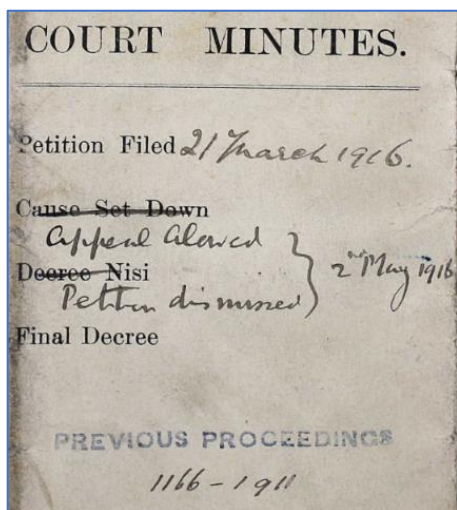 COURT MINUTES.
Petition Filed 21 March 1916.
Cause Set Down
Appeal Alowed
Decree Nisi
2nd May 1916
Petition dismissed
Final Decree
PREVIOUS PROCEEDINGS
1166-1911